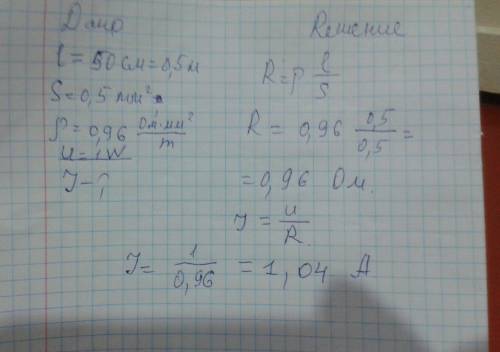 Дано
l = 50 см = 0,5 м
S = 0,5 mm²
ρ = 0,96 Ом·мм²/m
U = 1 W
J - ?
Решение
R = ρ l/S
R = 0,96 0,5/0,5 =
= 0,96 Ом.
J = U/R
J = 1/0,96 = 1,04 А